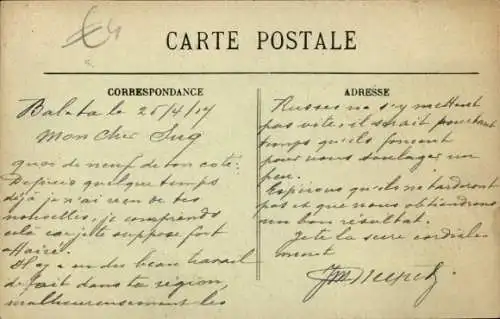 CARTE POSTALE
CORRESPONDANCE
Balata le 25/4/17
Mon Cher
quoi de neuf de ton coté.
Depuis quelque temps
déjà je n'ai rien de tes
nouvelles, je comprends
cela car je te suppose fort
affairé.
Il y a un du beau travail
de fait dans ta région,
malheureusement les
ADRESSE
Russes ne s'y mettent
pas vite, il serait pourtant
temps qu'ils foncent
pour nous soulager un
peu.
Espérons qu'ils ne tarderont
pas et que nous obtiendrons
un bon résultat.
Je te la serre cordiale
ment